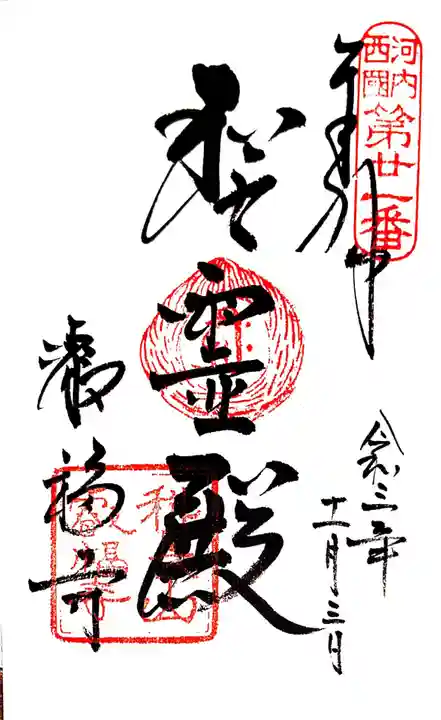 河内
西國
第廿一番
奉拝
聖霊殿
叡福寺
令和三年
十一月三日